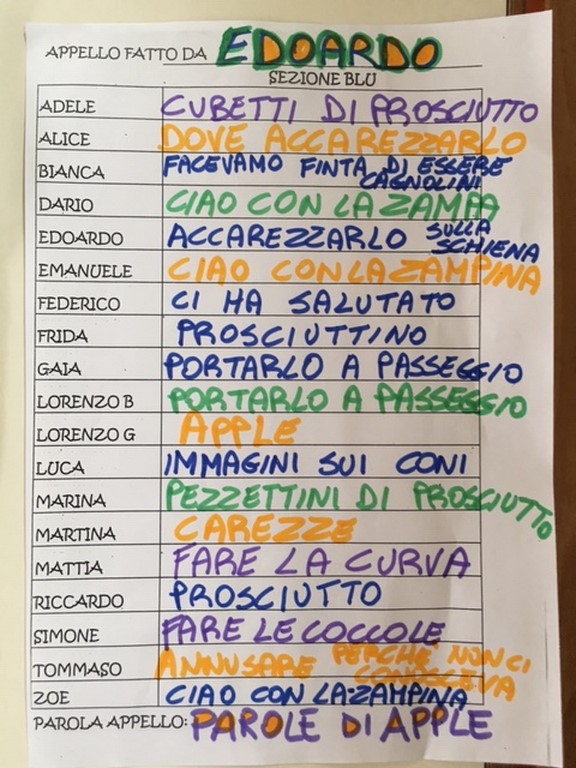 APPELLO FATTO DA EDOARDO
SEZIONE BLU
ADELE CUBETTI DI PROSCIUTTO
ALICE DOVE ACCAREZZARLO
BIANCA FACEVAMO FINTA DI ESSERE
CAGNOLINI
DARIO CIAO CON LA ZAMPA
EDOARDO ACCAREZZARLO SULLA
SCHIENA
EMANUELE CIAO CON LA ZAMPINA
FEDERICO CI HA SALUTATO
FRIDA PROSCIUTTINO
GAIA PORTARLO A PASSEGGIO
LORENZO B PORTARLO A PASSEGGIO
LORENZO G APPLE
LUCA IMMAGINI SUI CONI
MARINA PEZZETTINI DI PROSCIUTTO
MARTINA CAREZZE
MATTIA FARE LA CURVA
RICCARDO PROSCIUTTO
SIMONE FARE LE COCCOLE
TOMMASO ANNUSARE PERCHÈ NON CI
CONOSCEVA
ZOE CIAO CON LA ZAMPINA
PAROLA APPELLO: PAROLE DI APPLE